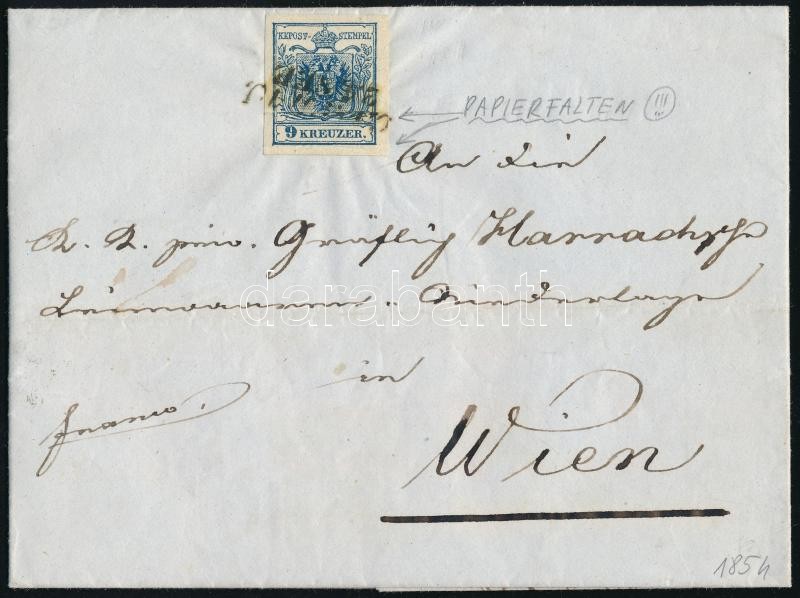 KKPOST-STEMPEL
9 KREUZER.
PAPIERFALTEN !!!
An die
K. K. priv. Gräflig Harrachsche
Leinwaaren-Niederlage
in
franco.
Wien
1854
darabanth